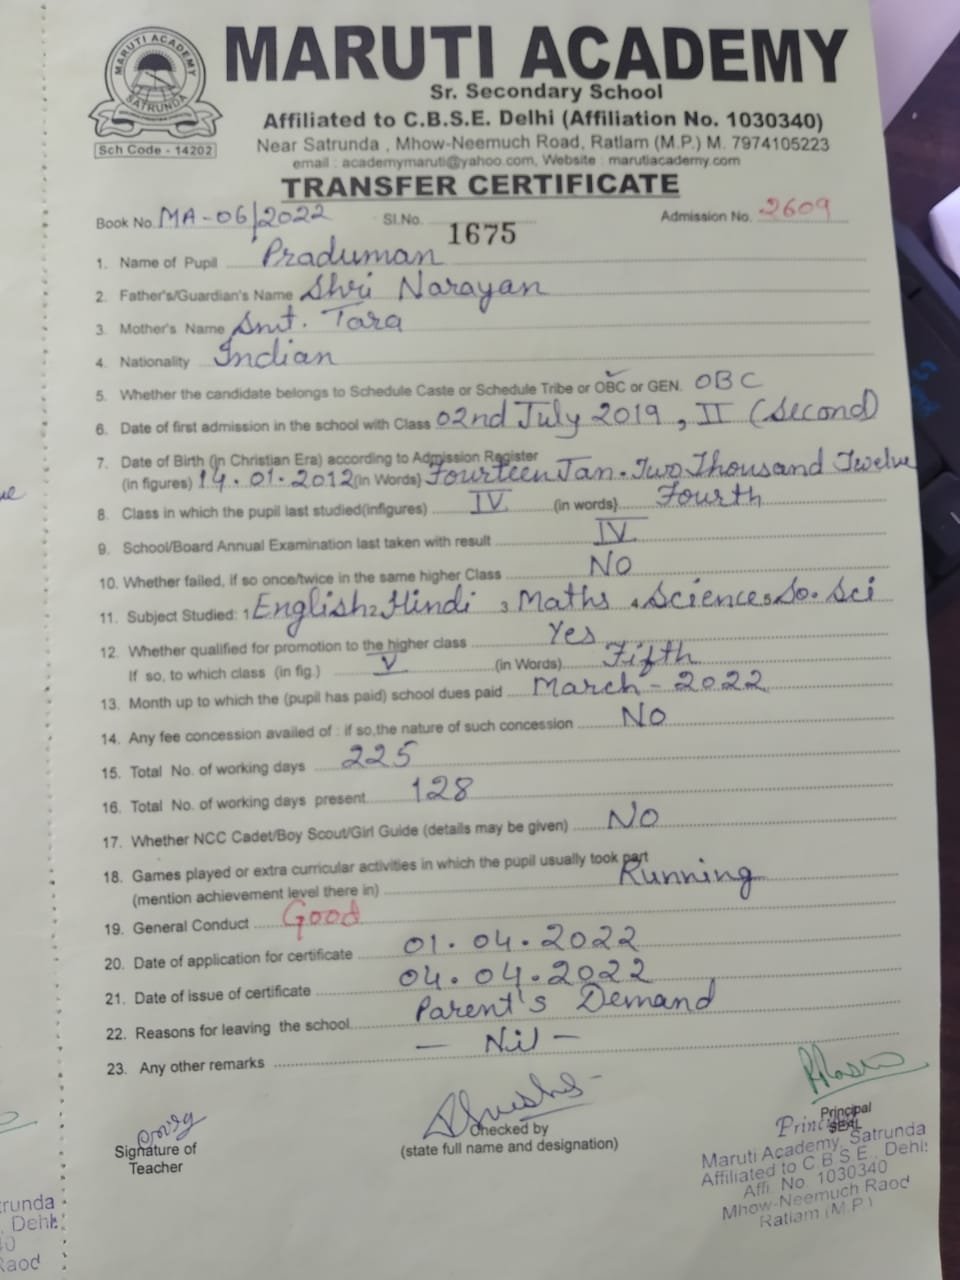 MARUTI ACADEMY
SATRUNDA
Sch Code - 14202
MARUTI ACADEMY
Sr. Secondary School
Affiliated to C.B.S.E. Delhi (Affiliation No. 1030340)
Near Satrunda , Mhow-Neemuch Road, Ratlam (M.P.) M. 7974105223
email : academymaruti@yahoo.com, Website : marutiacademy.com
TRANSFER CERTIFICATE
Book No. MA-06/2022 Sl.No. 1675 Admission No. 2609
1. Name of Pupil Praduman
2. Father's/Guardian's Name Shri Narayan
3. Mother's Name Smt. Tara
4. Nationality Indian
5. Whether the candidate belongs to Schedule Caste or Schedule Tribe or OBC or GEN. OBC
6. Date of first admission in the school with Class 02nd July 2019, II (Second)
7. Date of Birth (in Christian Era) according to Admission Register
(in figures) 14.01.2012 (in Words) Fourteen Jan. Two Thousand Twelve
8. Class in which the pupil last studied(infigures) IV (in words} Fourth
9. School/Board Annual Examination last taken with result IV
10. Whether failed, if so once/twice in the same higher Class No
11. Subject Studied: 1 English 2 Hindi 3 Maths 4 Science 5 So. Sci
12. Whether qualified for promotion to the higher class Yes
If so, to which class (in fig.) V (in Words) Fifth
13. Month up to which the (pupil has paid) school dues paid March - 2022
14. Any fee concession availed of : if so,the nature of such concession No
15. Total No. of working days 225
16. Total No. of working days present 128
17. Whether NCC Cadet/Boy Scout/Girl Guide (details may be given) No
18. Games played or extra curricular activities in which the pupil usually took part
(mention achievement level there in) Running
19. General Conduct Good
20. Date of application for certificate 01.04.2022
21. Date of issue of certificate 04.04.2022
22. Reasons for leaving the school Parent's Demand
23. Any other remarks - Nil -
Signature of
Teacher
Checked by
(state full name and designation)
Principal
SEAL
Principal
Maruti Academy, Satrunda
Affiliated to C B S E. Dehi:
Affi. No. 1030340
Mhow-Neemuch Raod
Ratlam (M.P.)